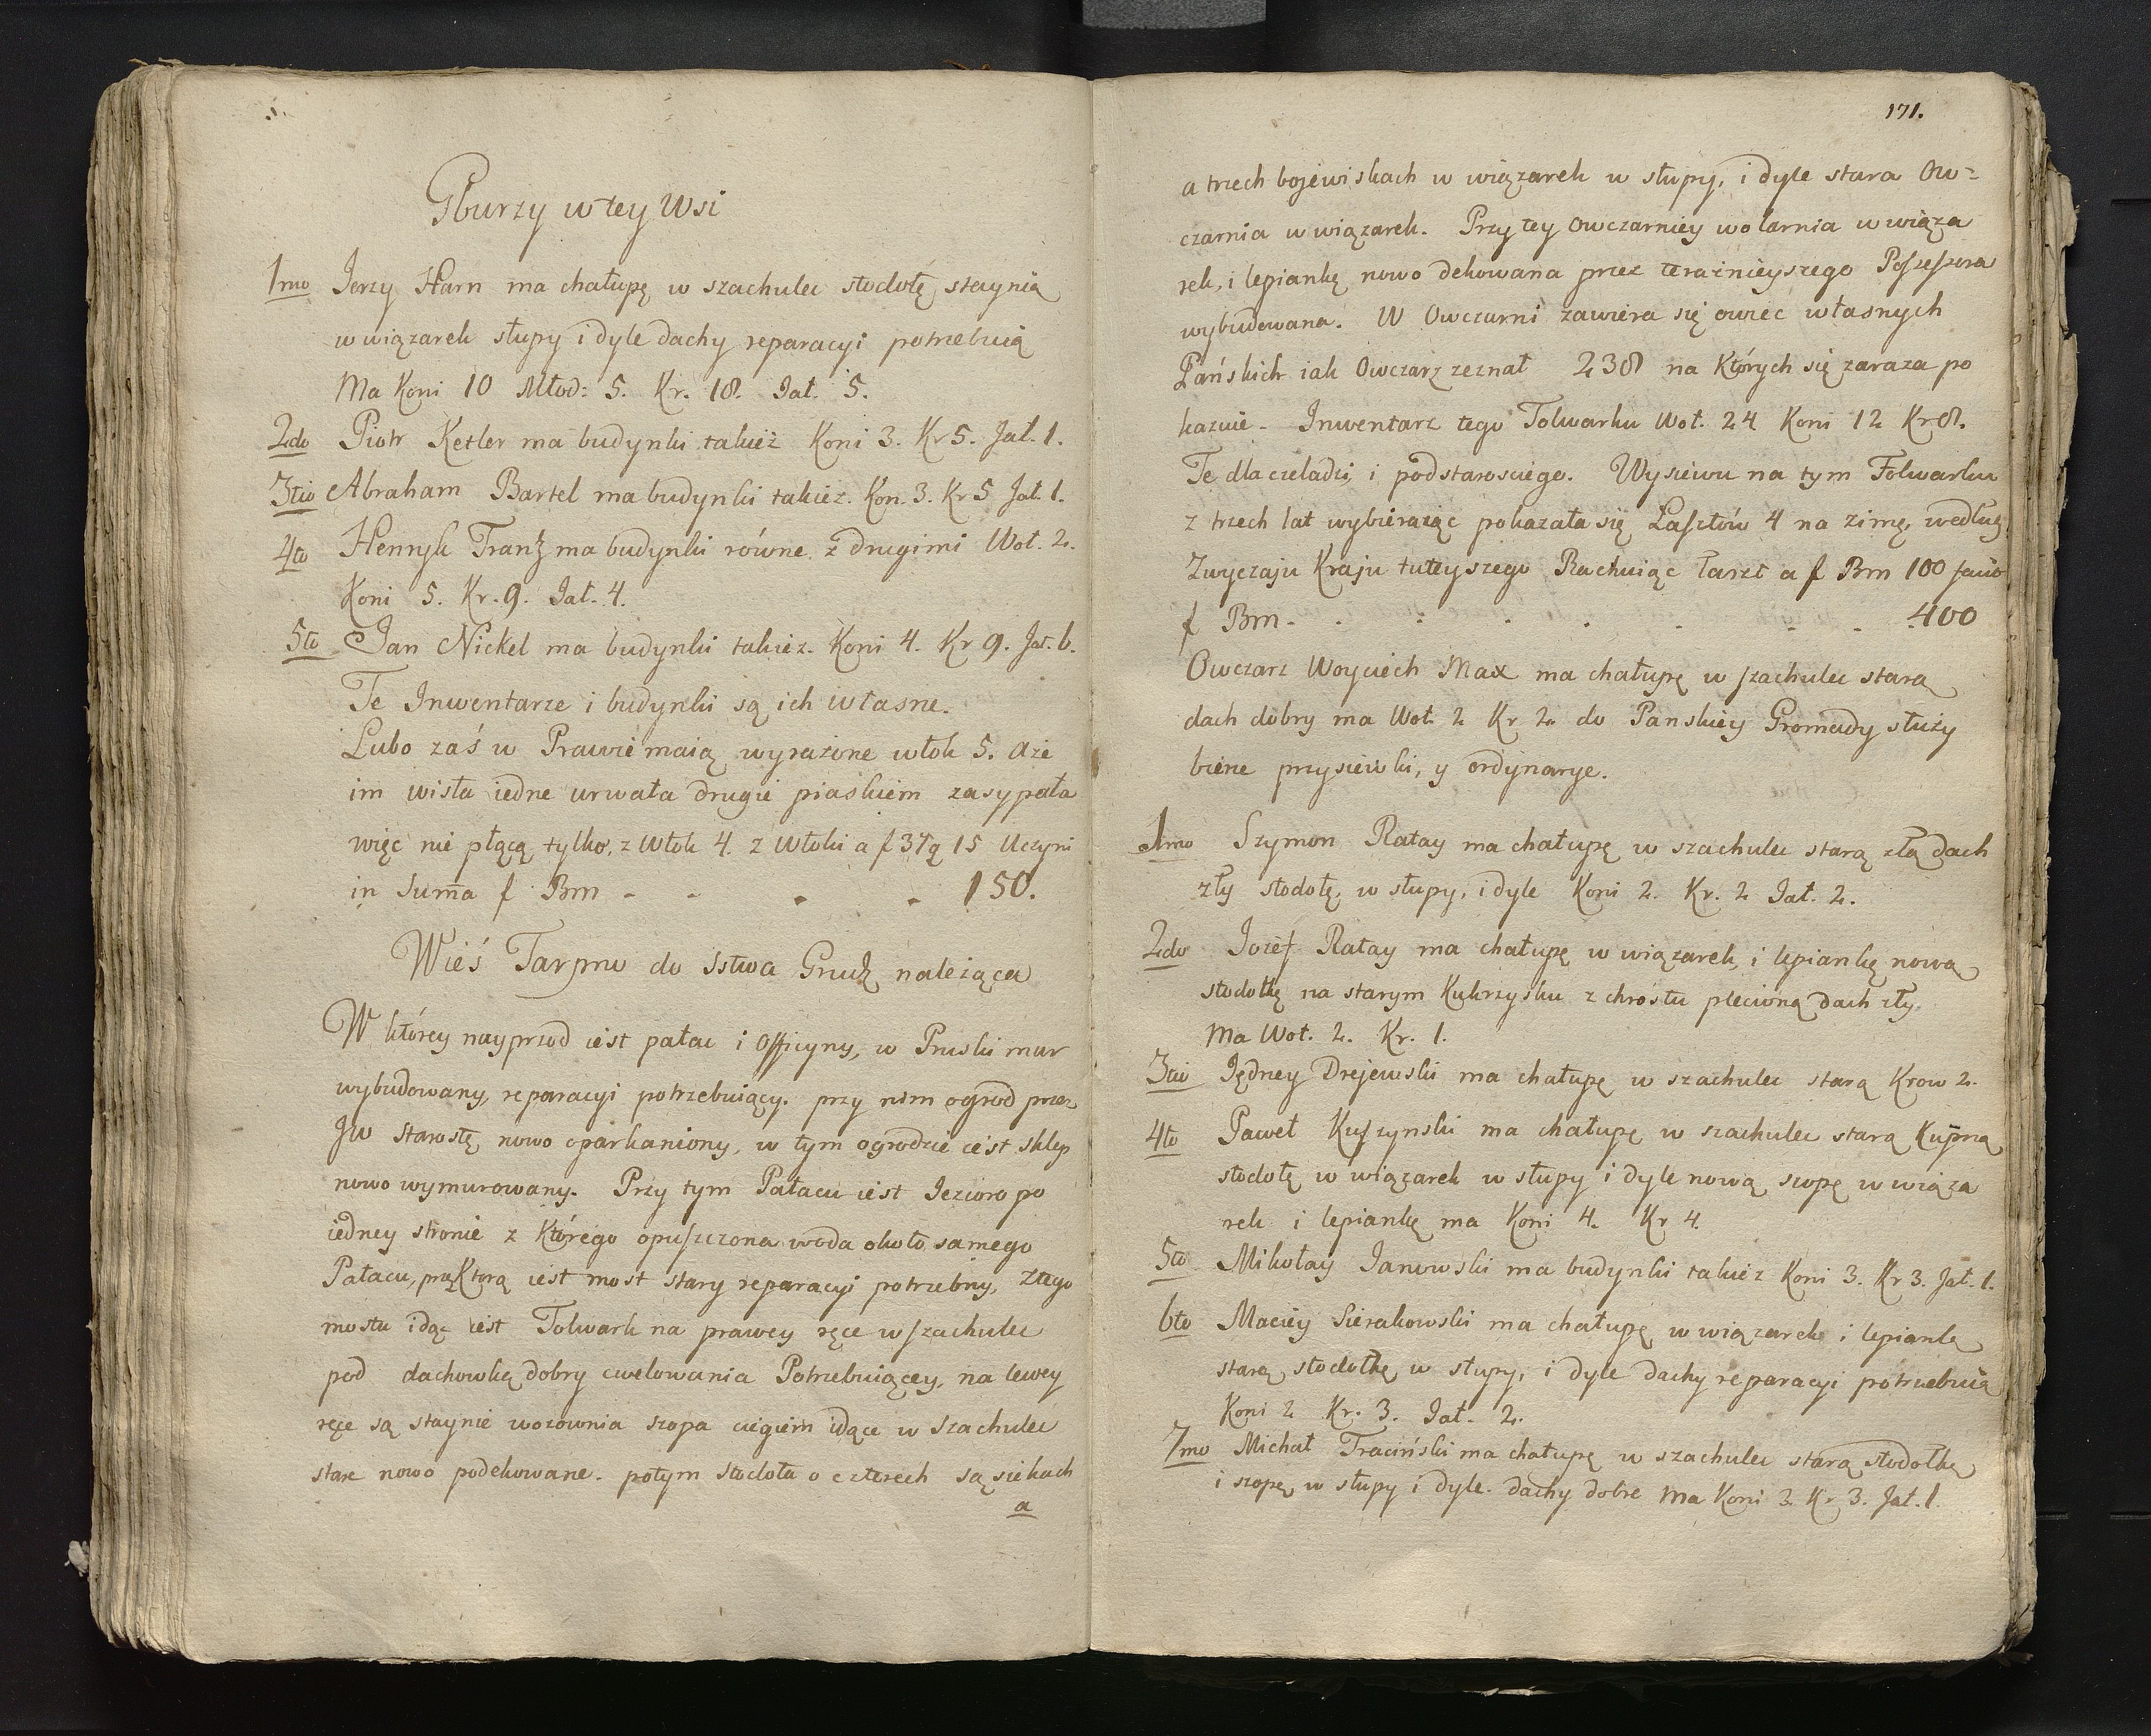 Gburzy w tey Wsi
1mo Jerzy Harn ma chałupę w szachulec stodołę, staynią
w wiązarek słupy i dyle dachy reparacyi potrzebuią
Ma Koni 10 Młod: 5. Kr. 18. Jał. 5.
2do Piotr Ketler ma budynki takież Koni 3. Kr 5. Jał. 1.
3tio Abraham Bartel ma budynki takież. Kon. 3. Kr 5 Jał. 1.
4to Henryk Frantz ma budynki równe z drugimi Woł. 2.
Koni 5. Kr. 9. Jał. 4.
5to Jan Nickel ma budynki takież. Koni 4. Kr 9. Jał. 6.
Te Inwentarze i budynki są ich własne.
Lubo zaś w Prawie maią wyrażone włok 5. aże
im wisła iedne urwała drugie piaskiem zasypała
więc nie płącą tylko, z Włok 4. z Włoki a f 37 g 15 Uczyni
in Suma f Brn - - - - 150.
Wieś Tarpno do Sstwa Grudz należąca
W którey nayprzod iest pałac i Officyny, w Pruski mur
wybudowany, reparacyi potrzebuiący. przy nim ogrod przez
JW Starostę nowo oparkaniony, w tym ogrodzie iest sklep
nowo wymurowany. Przy tym Pałacu iest Jezioro po
iedney stronie z Którego opuszczona woda około samego
Pałacu, przez Ktorą iest most stary reparacyi potrzebny, z tego
mostu idąc iest Folwark na prawey ręce w szachulec
pod dachowką dobry cwelowania Potrzebuiącey, na lewey
ręce są staynie wozownia szopa ciągiem idące w Szachulec
stare nowo podekowane. potym Stodoła o czterech sąsiekach
a
171.
a trzech bojewiskach w wiązarek w słupy, i dyle stara Ow=
czarnia w wiązarek. Przy tey Owczarniey wołarnia w wiąza
rek, i lepiankę nowo dekowana przez teraźnieyszego Possessora
wybudowana. W Owczarni zawiera się owiec własnych
Pańskich iak Owczarz zeznał 238 na Których się zaraza po
kazuie. Inwentarz tego Folwarku Woł. 24 Koni 12 Kr 8.
Te dla czeladzi i podstarosciego. Wysiewu na tym Folwarku
z trzech lat wybieraiąc pokazała się Lasztów 4 na zimę, według
Zwyczaju Kraju tuteyszego Rachuiąc łaszt a f Brn 100 facit
f Brn - - - - - - - 400
Owczarz Woyciech Max ma chałupę w szachulec starą
dach dobry ma Woł. 2 Kr 2. do Panskiey Gromady służy
bierze przysiewki, y ordynarye.
1mo Szymon Ratay ma chałupę w szachulec starą złą dach
zły stodołę, w słupy, i dyle Koni 2. Kr. 2 Jał. 2.
2do Jozef Ratay ma chałupę w wiązarek, i lepiankę nową
stodołkę na starym Kukrzysku z chrostu plecioną dach zły
Ma Woł. 2. Kr. 1.
3tio Jędrzey Drejewski ma chałupę w szachulec starą Krow 2.
4to Paweł Kuszynski ma chałupę w szachulec starą Kupną
stodołę w wiązarek w słupy i dyle nową szopę w wiąza
rek i lepiankę ma Koni 4. Kr 4.
5to Mikołay Janowski ma budynki takież Koni 3. Kr 3. Jał. 1.
6to Maciey Sierakowski ma chałupę w wiązarek i lepiankę
starą stodołkę w słupy, i dyle dachy reparacyi potrzebuią
Koni 2 Kr. 3. Jał. 2.
7mo Michał Traciński ma chałupę w szachulec starą stodołkę
i szopę w słupy i dyle. dachy dobre ma Koni 3. Kr 3. Jał. 1.